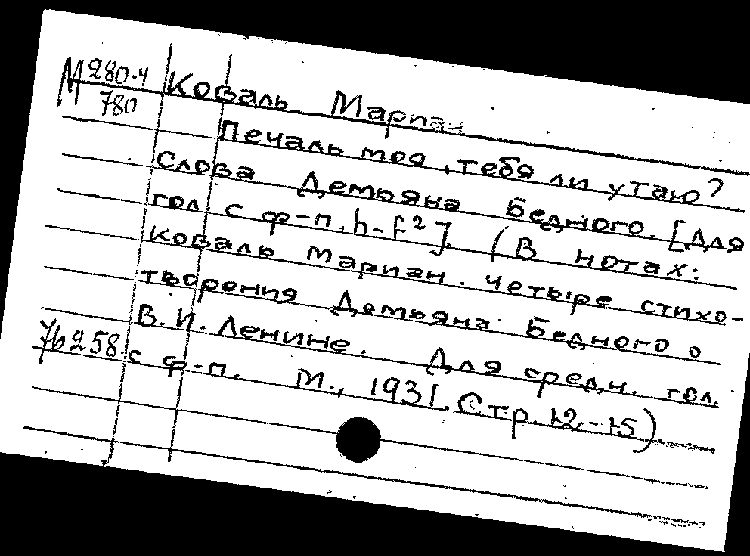 М 280-4
780
Коваль Мариан
Печаль моя, тебя ли утаю?
Слова Демьяна Бедного. [Для
гол с ф-п. h-f²]. (В нотах:
Коваль Мариан. Четыре стихо-
творения Демьяна Бедного о
В.И. Ленине. Для средн. гол.
с ф-п. М., 1931. Стр. 12-15)
76258